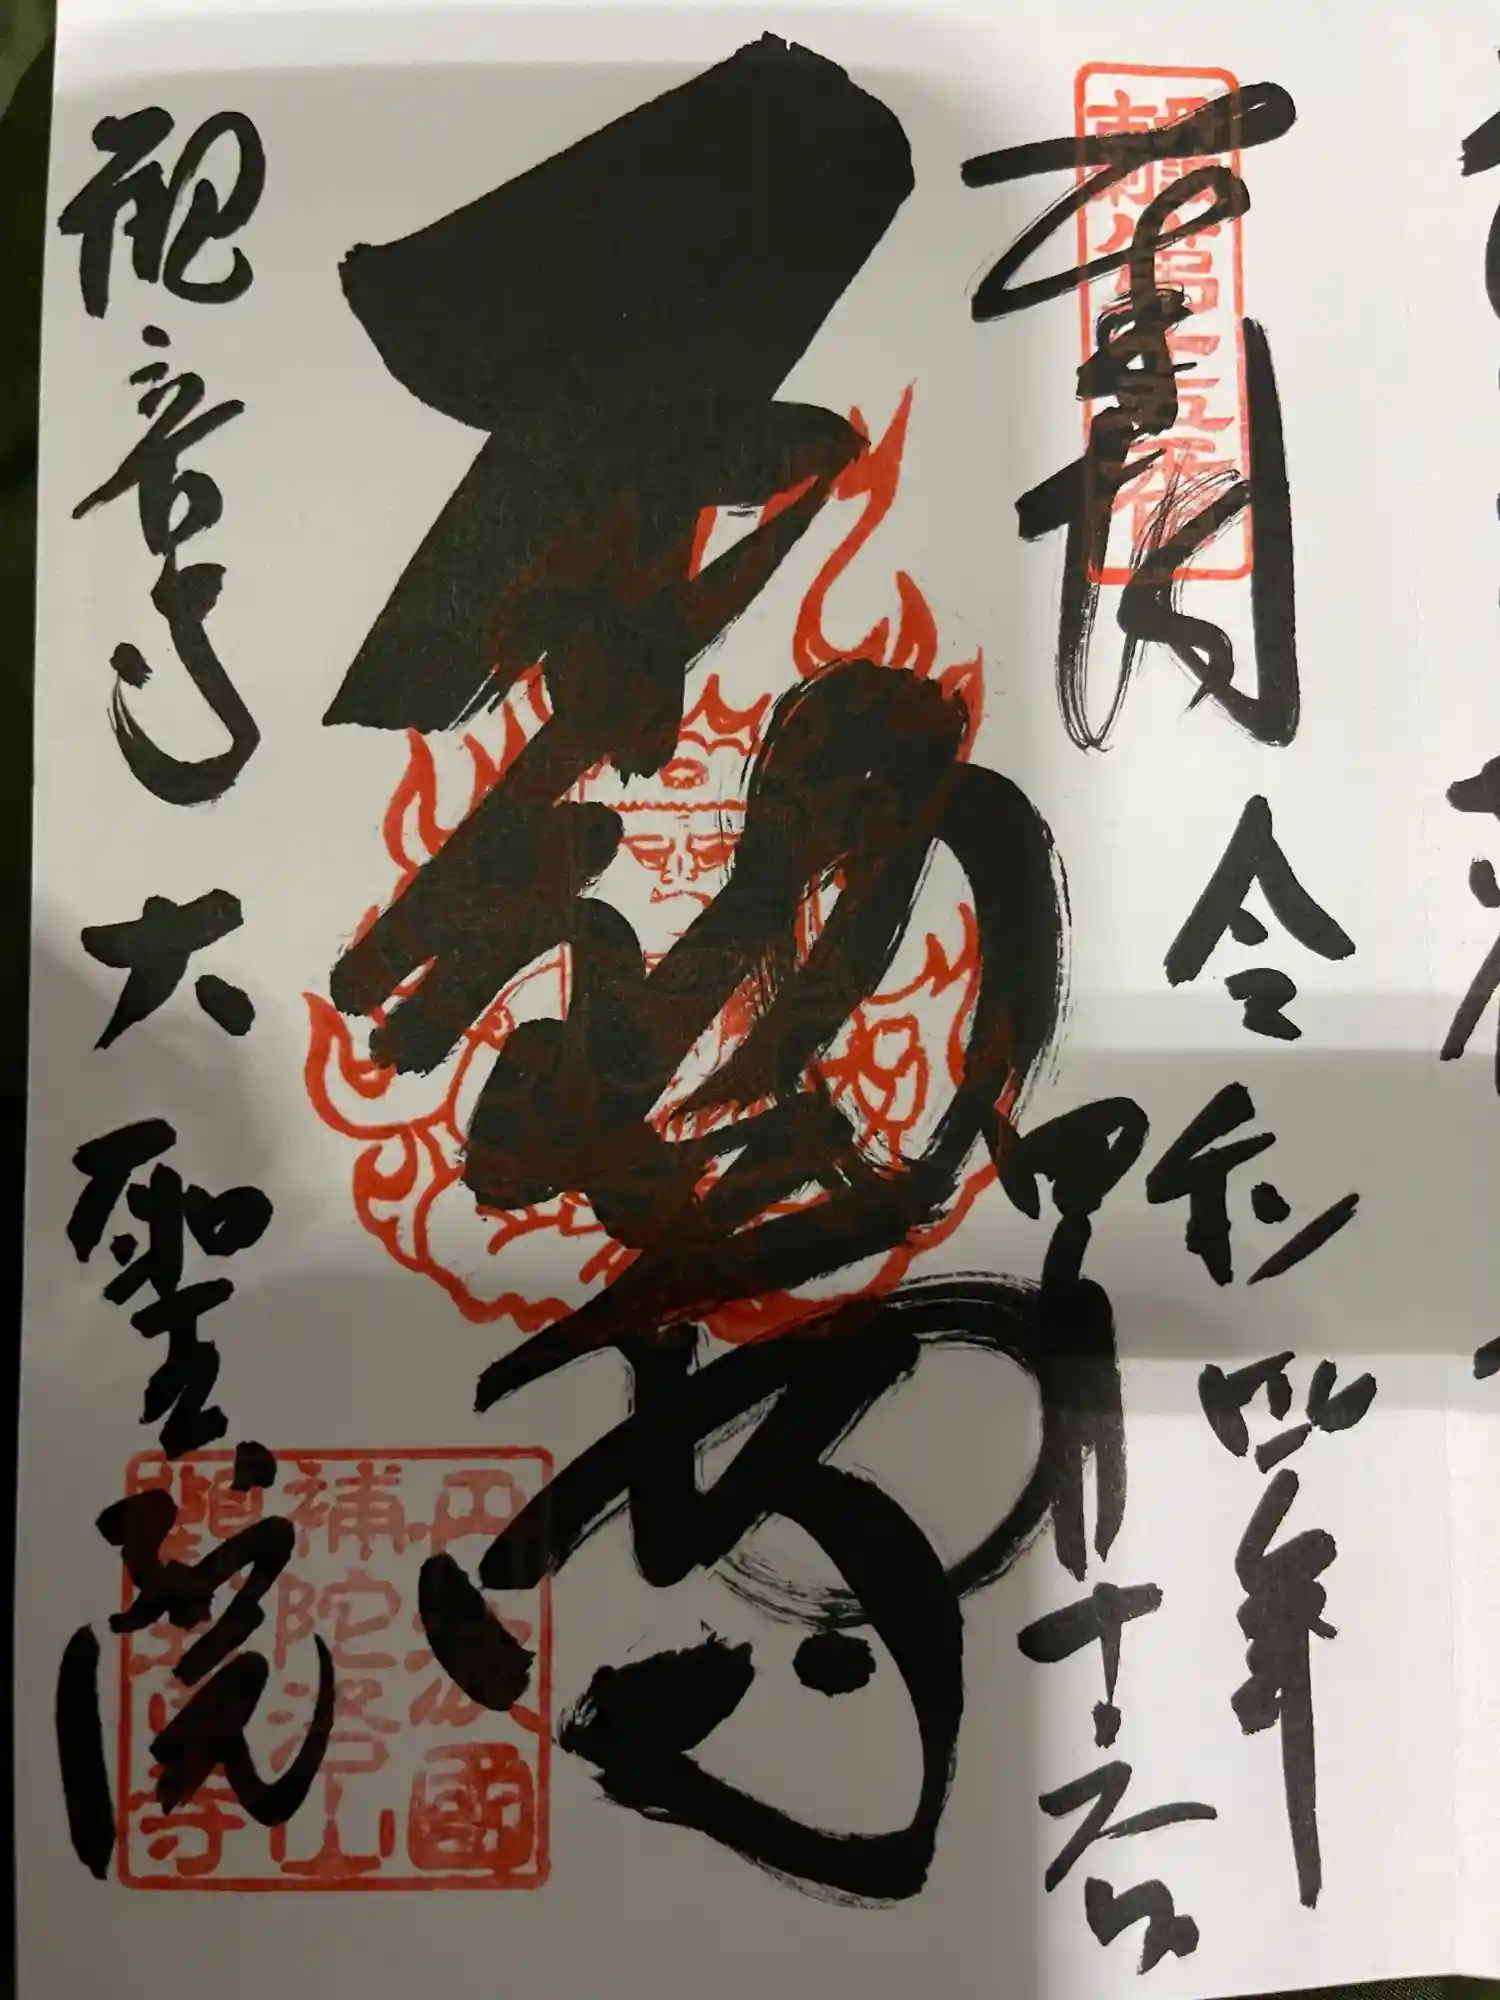 奉拝
令和四年
四月十六日
不動尊
観音寺大聖院
丹波國
補陀洛山
觀音寺